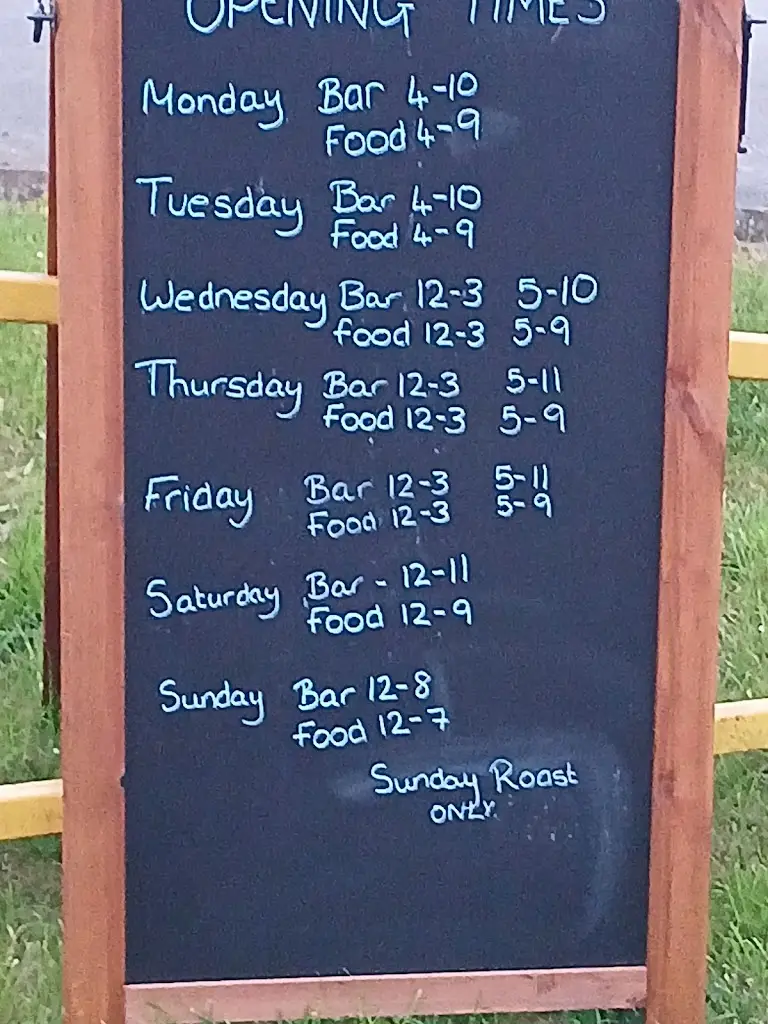 OPENING TIMES
Monday Bar 4-10
Food 4-9
Tuesday Bar 4-10
Food 4-9
Wednesday Bar 12-3 5-10
food 12-3 5-9
Thursday Bar 12-3 5-11
Food 12-3 5-9
Friday Bar 12-3 5-11
Food 12-3 5-9
Saturday Bar - 12-11
Food 12-9
Sunday Bar 12-8
Food 12-7
Sunday Roast
ONLY